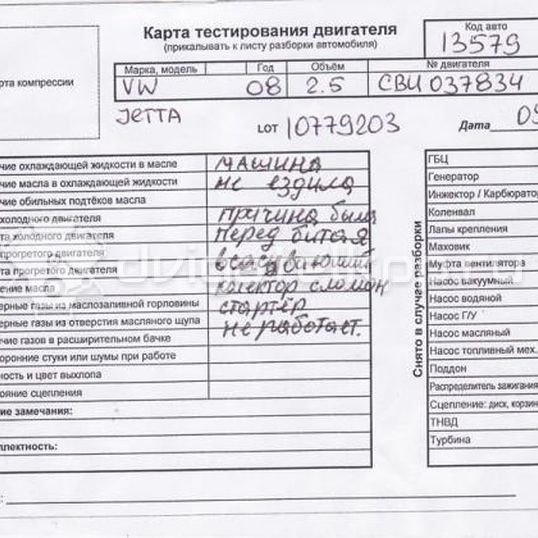 Карта тестирования двигателя
(прикалывать к листу разборки автомобиля)
Код авто
13579
рта компрессии
Марка, модель Год Объём № двигателя
VW 08 2.5 CBU 037834
JETTA
LOT 10779203 Дата 09
чие охлаждающей жидкости в масле МАШИНА
чие масла в охлаждающей жидкости не ездила
чие обильных подтёков масла
холодного двигателя причина была
та холодного двигателя перед битая
прогретого двигателя
та прогретого двигателя
ение масла колектор сломан
ерные газы из маслозаливной горловины стартёр
ерные газы из отверстия масляного щупа не работает.
чие газов в расширительном бачке
оронние стуки или шумы при работе
ность и цвет выхлопа
ояние сцепления
ие замечания:
плектность:
Снято в случае разборки
ГБЦ
Генератор
Инжектор / Карбюратор
Коленвал
Лапы крепления
Маховик
Муфта вентилятора
Насос вакуумный
Насос водяной
Насос Г/У
Насос масляный
Насос топливный мех.
Поддон
Распределитель зажигания
Сцепление: диск, корзин
ТНВД
Турбина